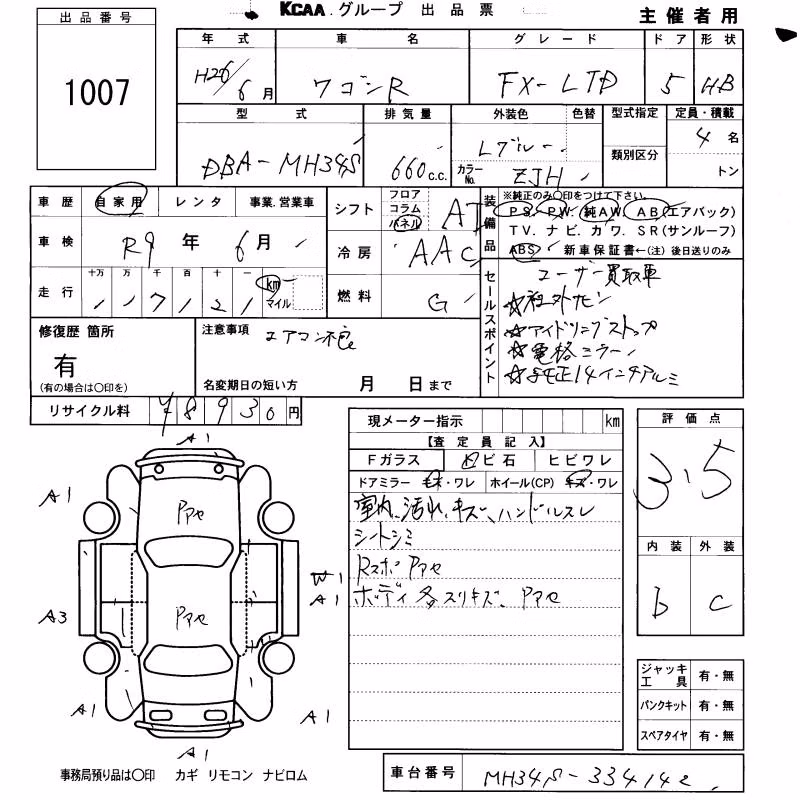 KCAA.グループ 出品票
主催者用
出品番号
1007
年式 車名 グレード ドア 形状
H26/6月 ワゴンR FX-LTD 5 HB
型式 排気量 外装色 色替 型式指定 定員・積載
DBA-MH34S 660c.c. Lブルー 類別区分 4名
カラーNo. ZJH トン
車歴 自家用 レンタ 事業.営業車
シフト フロア コラム パネル AT
装備品 ※純正のみ○印をつけて下さい。
PS. PW. 純AW. AB(エアバック)
TV. ナビ. カワ. SR(サンルーフ)
ABS 新車保証書←(注)後日送りのみ
車検 R9年6月
冷房 AAC
走行 十万 万 千 百 十 一 km マイル
7121
燃料 G
セールスポイント
ユーザー買取車
☆社外ナビ
☆アイドリングストップ
☆電格ミラー
☆純正14インチアルミ
修復歴 箇所
有
(有の場合は○印を)
注意事項 エアコン不良
名変期日の短い方 月 日まで
リサイクル料 78930円
現メーター指示 km
【査定員記入】
Fガラス 飛ビ石 ヒビワレ
ドアミラー キズ・ワレ ホイール(CP) キズ・ワレ
室内、汚れ、キズ、ハンドルスレ
シートシミ
Rスポ Pアセ
ボディ 各スリキズ、Pアセ
評価点
3.5
内装 外装
b c
A1
A1
Pアセ
W1
A1
A3
Pアセ
A1
A1
A1
ジャッキ工具 有・無
パンクキット 有・無
スペアタイヤ 有・無
事務局預り品は○印 カギ リモコン ナビロム
車台番号 MH34S-334142